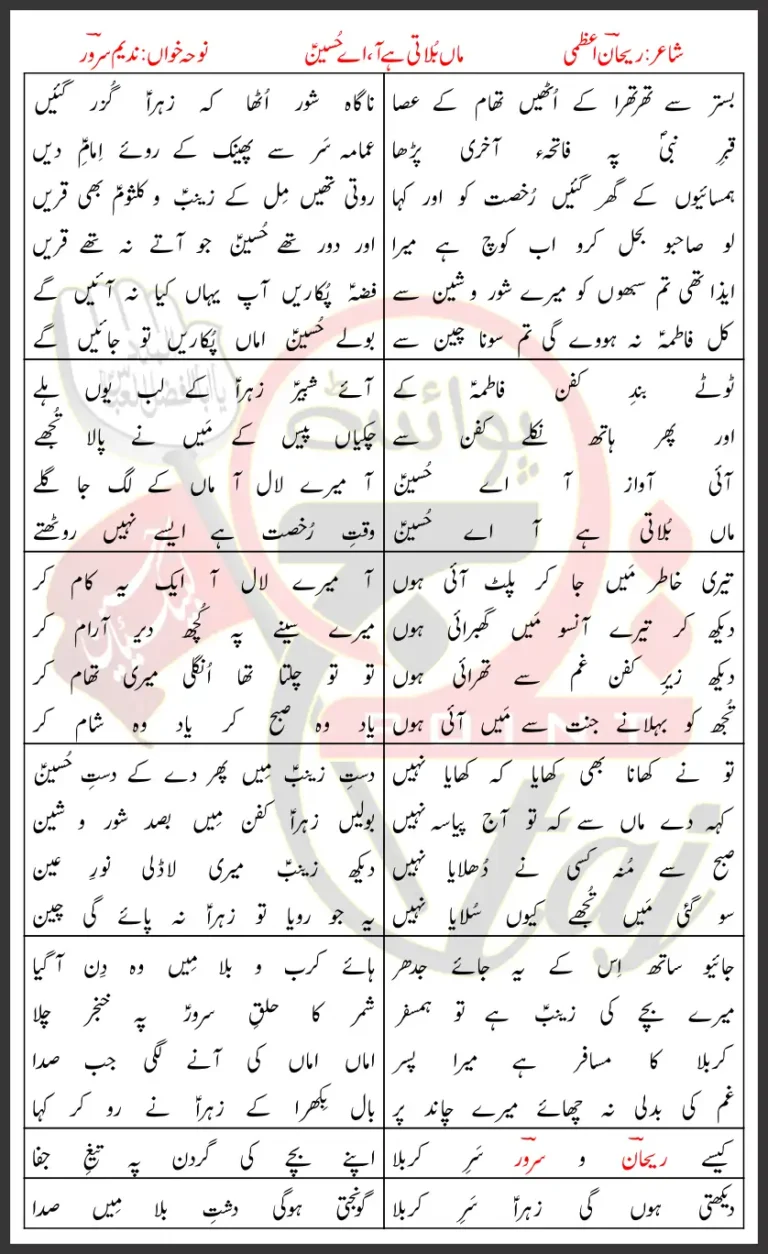 شاعر: ریحانؔ اعظمی ماں بُلاتی ہے آ، اے حُسینؑ نوحہ خواں: ندیم سرورؔ
بستر سے تھرتھرا کے اُٹھیں تھام کے عصا
قبرِ نبیؐ پہ فاتحہء آخری پڑھا
ہمسائیوں کے گھر گئیں رُخصت کو اور کہا
لو صاحبو بحل کرو اب کوچ ہے میرا
ایذا تھی تم سبھوں کو میرے شور و شین سے
کل فاطمہؑ نہ ہووے گی تم سونا چین سے
ناگاہ شور اُٹھا کہ زہراؑ گُزر گئیں
عمامہ سَر سے پھینک کے روئے اِمامِؑ دیں
روتی تھیں مِل کے زینبؑ و کلثومؑ بھی قریں
اور دور تھے حُسینؑ جو آتے نہ تھے قریں
فضہؑ پُکاریں آپ یہاں کیا نہ آئیں گے
بولے حُسینؑ اماں پُکاریں تو جائیں گے
ٹوٹے بندِ کفن فاطمہؑ کے
اور پھر ہاتھ نکلے کفن سے
آئی آواز آ اے حُسینؑ
ماں بُلاتی ہے آ اے حُسینؑ
آئے شبیرؑ زہراؑ کے لب یوں ہلے
چکیاں پیس کے مَیں نے پالا تُجھے
آ میرے لال آ ماں کے لگ جا گلے
وقتِ رُخصت ہے ایسے نہیں روٹھتے
تیری خاطر مَیں جا کر پلٹ آئی ہوں
دیکھ کر تیرے آنسو مَیں گھبرائی ہوں
دیکھ زیرِ کفن غم سے تھرائی ہوں
تُجھ کو بہلانے جنت سے مَیں آئی ہوں
آ میرے لال آ ایک یہ کام کر
میرے سینے پہ کُچھ دیر آرام کر
تو تو چلتا تھا اُنگلی میری تھام کر
یاد وہ صبح کر یاد وہ شام کر
تو نے کھانا بھی کھایا کہ کھایا نہیں
کہہ دے ماں سے کہ تو آج پیاسہ نہیں
صبح سے مُنہ کسی نے دُھلایا نہیں
سو گئی مَیں تُجھے کیوں سُلایا نہیں
دستِ زینبؑ مِیں پھر دے کے دستِ حُسینؑ
بولیں زہراؑ کفن مِیں بصد شور و شین
دیکھ زینبؑ میری لاڈلی نورِ عین
یہ جو رویا تو زہراؑ نہ پائے گی چین
جائیو ساتھ اِس کے یہ جائے جدھر
میرے بچے کی زینبؑ ہے تو ہمسفر
کربلا کا مسافر ہے میرا پسر
غم کی بدلی نہ چھائے میرے چاند پر
ہائے کرب و بلا مِیں وہ دِن آ گیا
شمر کا حلقِ سرورؑ پہ خنجر چلا
اماں اماں کی آنے لگی جب صدا
بال بِکھرا کے زہراؑ نے رو کر کہا
کیسے ریحانؔ و سرورؔ سَرِ کربلا
اپنے بچے کی گردن پہ تیغِ جفا
دیکھتی ہوں گی زہراؑ سَرِ کربلا
گونجتی ہوگی دشتِ بلا مِیں صدا
پوائنٹ
POINT
taj